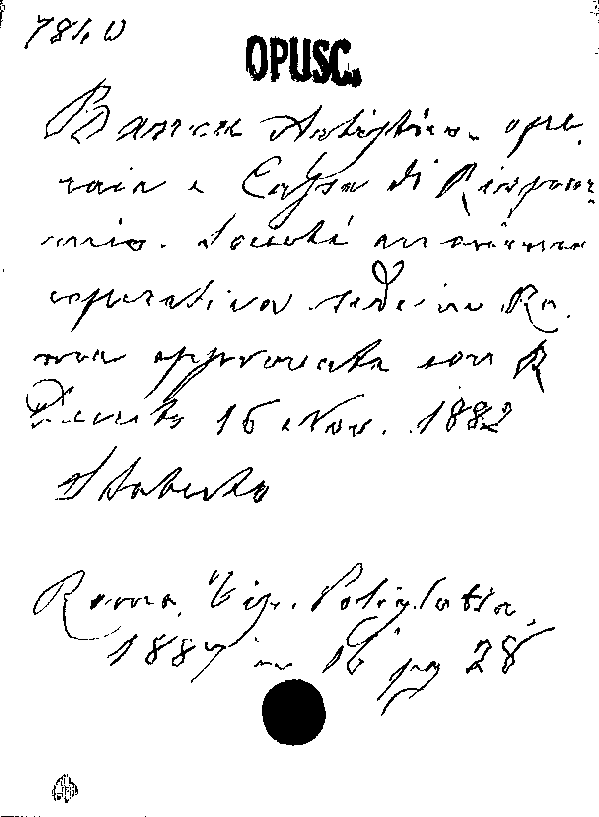 OPUSC.
Banca Artistico-ope
raia e Cassa di Rispar
mio. Società anonima
coperativa sede in Ro.
ma approvata con R
Decreto 16 Nov. 1882
Statuto
Roma, Tip. Poliglotta,
1887 in 16 pag 28